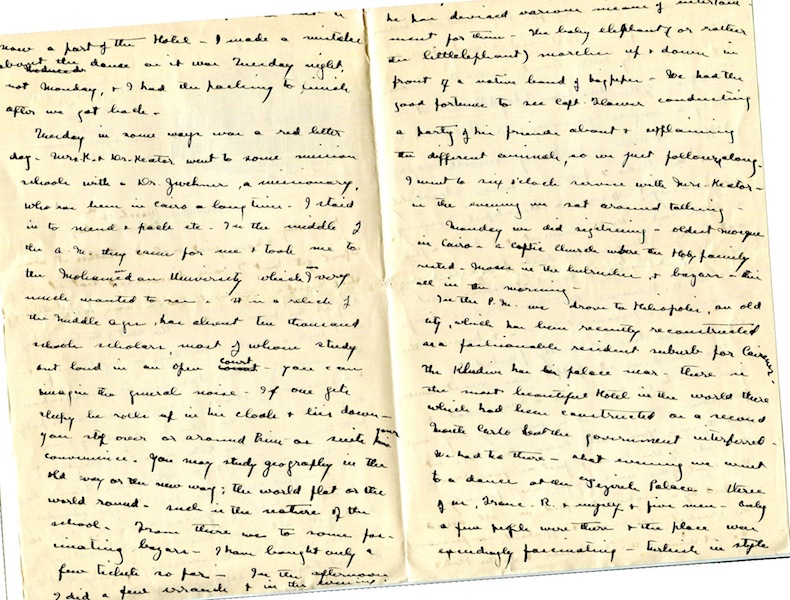 now a part of the Hotel - I made a mistake
about the dance as it was Tuesday night,
not Monday, & I had the packing to finish
after we got back -
Tuesday in some ways was a red letter
day - Mrs. K. & Dr. Keator went to some mission
schools with a Dr. Zwehmer, a missionary,
who has been in Cairo a long time - I staid
in to mend & pack etc - In the middle of
the A.M. they came for me & took me to
the Mohamedan University which I very
much wanted to see - It is a relick of
the Middle Ages, has about ten thousand
schools scholars, most of whom study
out loud in an open court - you can
imagin the general noise - If one gets
sleepy he rolls up in his cloak & lies down -
you step over or around him as suits your
convenience. You may study geography in the
old way or the new way; the world flat or the
world round - such is the nature of the
school - From there we to some fas-
cinating bazars - I have bought only a
few so far - In the afternoon
I did a few errands & in the evening
he has devised various means of entertain-
ment for them - The baby elephant (or rather
littlelephant) marches up & down in
front of a native band of bagpipes - We had the
good fortune to see Capt. Flower conducting
a party of his friends about & explaining
the different animals, so we just followed along -
I went to six o'clock service with Mrs. Keator -
in the evening we sat around talking
Monday we did sightseeing - oldest Mosque
in Cairo - a Coptic Church where the Holy family
rested - Moses in the bulrushes, & bazars - this
all in the morning -
In the P.M. we drove to Heliopolis, an old
city, which has been recently reconstructed
as a fashionable resident suburb for Cairenes.
The Khedive has palace near - there is
the most beautiful Hotel in the world there
which had been constructed as a second
Monte Carlo but the government interfered -
We had tea there - that evening we went
to a dance at the Gezireh Palace - three
of us, Franc. R. & myself & five men - Only
a few people were there & the place was
exceedingly fascinating - Turkish in style